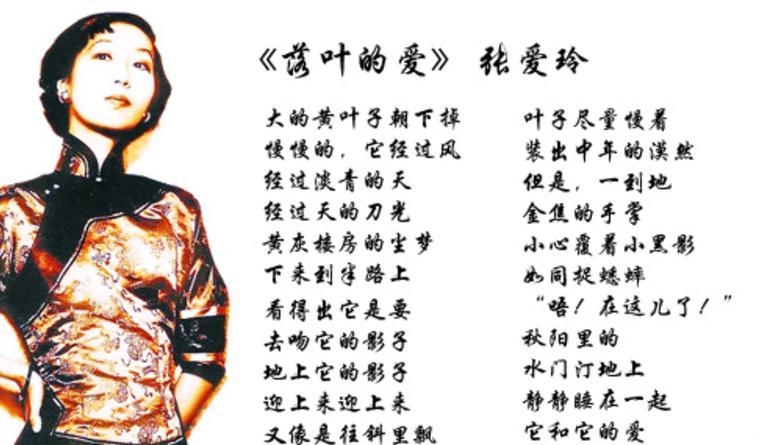 《落叶的爱》 张爱玲
大的黄叶子朝下掉
慢慢的，它经过风
经过淡青的天
经过天的刀光
黄灰楼房的尘梦
下来到半路上
看得出它是要
去吻它的影子
地上它的影子
迎上来迎上来
又像是往斜里飘
叶子尽量慢着
装出中年的漠然
但是，一到地
金焦的手掌
小心覆着小黑影
如同捉蟋蟀
“唔！在这儿了！”
秋阳里的
水门汀地上
静静睡在一起
它和它的爱